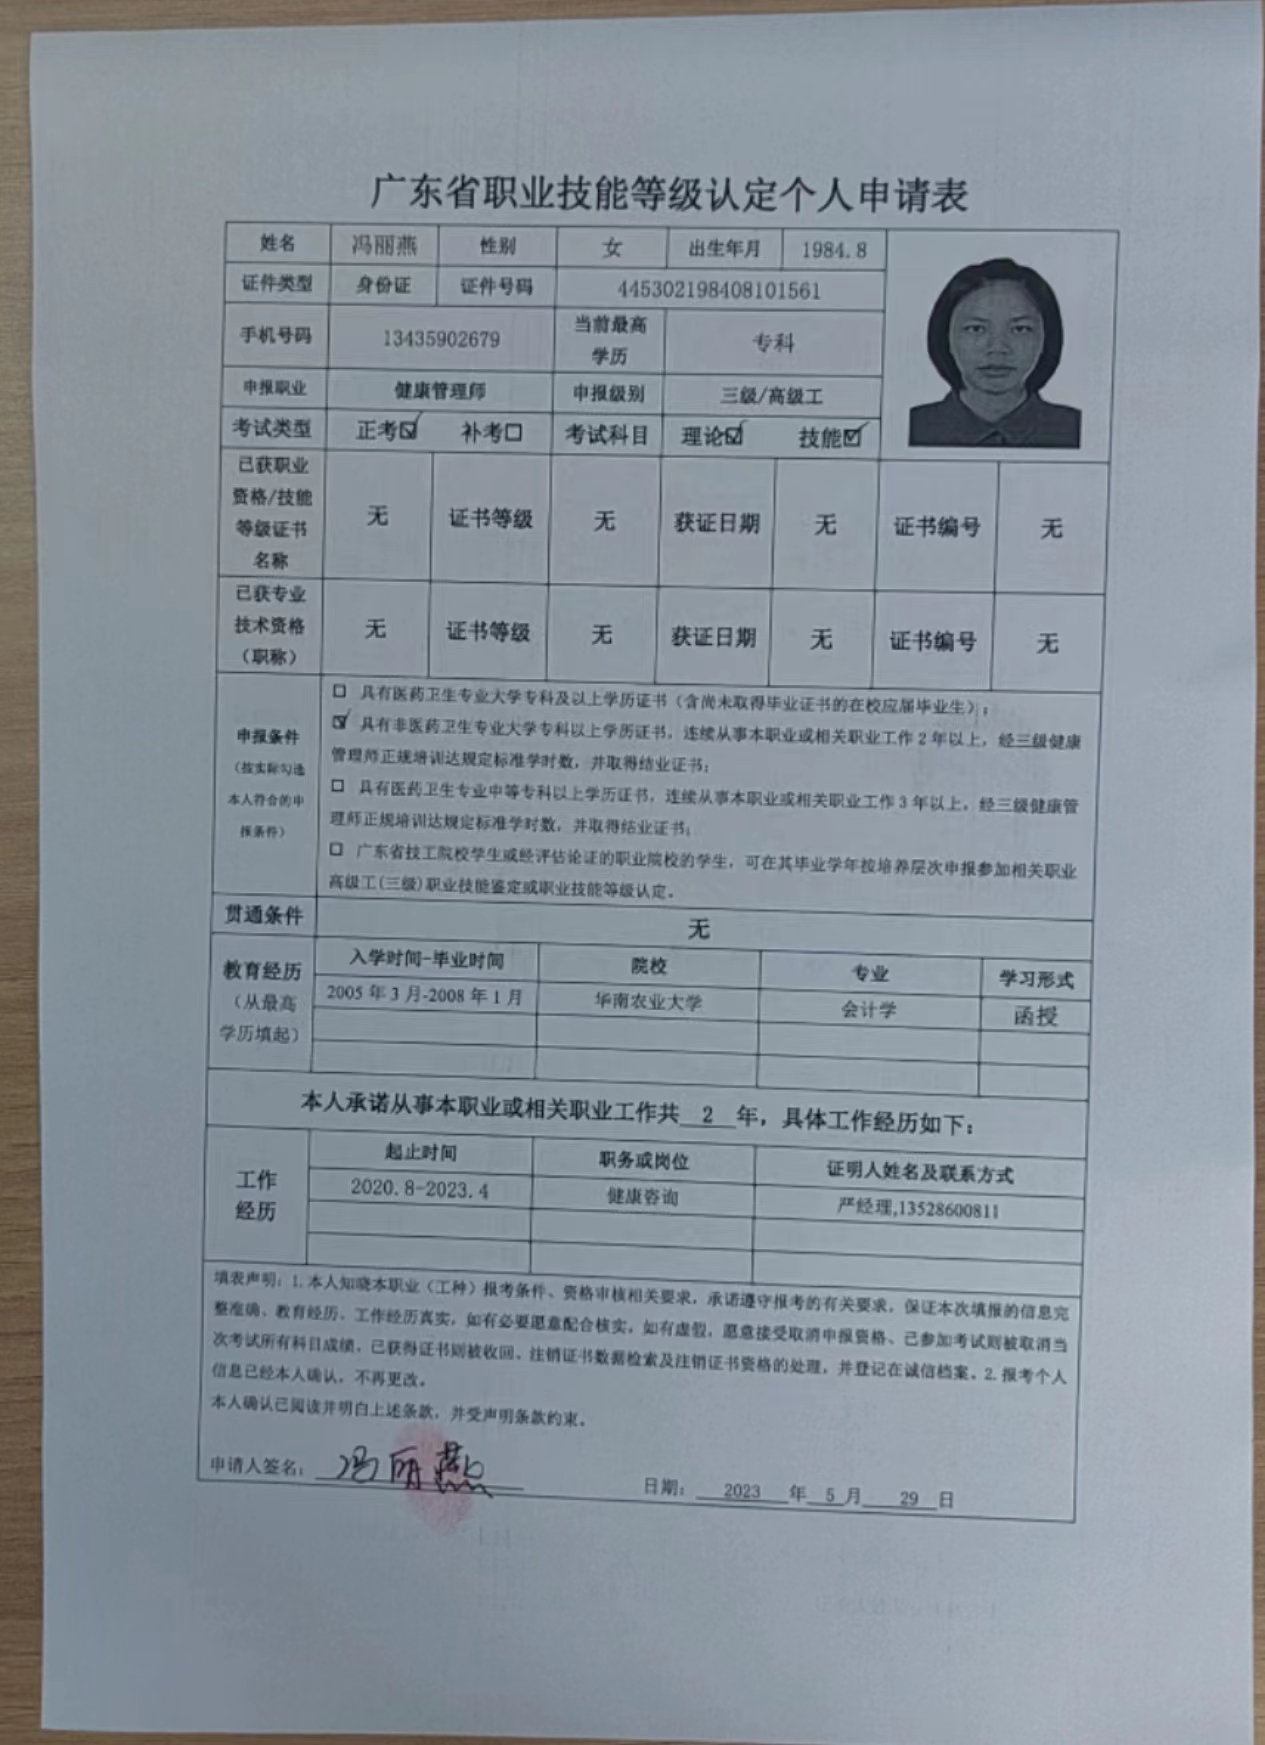 广东省职业技能等级认定个人申请表
姓名 冯丽燕 性别 女 出生年月 1984.8
证件类型 身份证 证件号码 445302198408101561
手机号码 13435902679 当前最高学历 专科
申报职业 健康管理师 申报级别 三级/高级工
考试类型 正考☑ 补考☐ 考试科目 理论☑ 技能☑
已获职业资格/技能等级证书名称 无 证书等级 无 获证日期 无 证书编号 无
已获专业技术资格（职称） 无 证书等级 无 获证日期 无 证书编号 无
申报条件
（按实际勾选
本人符合的申
报条件）
☐ 具有医药卫生专业大学专科及以上学历证书（含尚未取得毕业证书的在校应届毕业生）；
☑ 具有非医药卫生专业大学专科以上学历证书，连续从事本职业或相关职业工作2年以上，经三级健康
管理师正规培训达规定标准学时数，并取得结业证书；
☐ 具有医药卫生专业中等专科以上学历证书，连续从事本职业或相关职业工作3年以上，经三级健康管
理师正规培训达规定标准学时数，并取得结业证书；
☐ 广东省技工院校学生或经评估论证的职业院校的学生，可在其毕业学年按培养层次申报参加相关职业
高级工(三级)职业技能鉴定或职业技能等级认定。
贯通条件 无
教育经历
（从最高
学历填起）
入学时间-毕业时间 院校 专业 学习形式
2005年3月-2008年1月 华南农业大学 会计学 函授
本人承诺从事本职业或相关职业工作共 2 年，具体工作经历如下：
工作
经历
起止时间 职务或岗位 证明人姓名及联系方式
2020.8-2023.4 健康咨询 严经理,13528600811
填表声明：1.本人知晓本职业（工种）报考条件、资格审核相关要求，承诺遵守报考的有关要求，保证本次填报的信息完
整准确、教育经历、工作经历真实，如有必要愿意配合核实，如有虚假，愿意接受取消申报资格、已参加考试则被取消当
次考试所有科目成绩，已获得证书则被收回、注销证书数据检索及注销证书资格的处理，并登记在诚信档案。2.报考个人
信息已经本人确认，不再更改。
本人确认已阅读并明白上述条款，并受声明条款约束。
申请人签名： 冯丽燕 日期： 2023 年 5 月 29 日